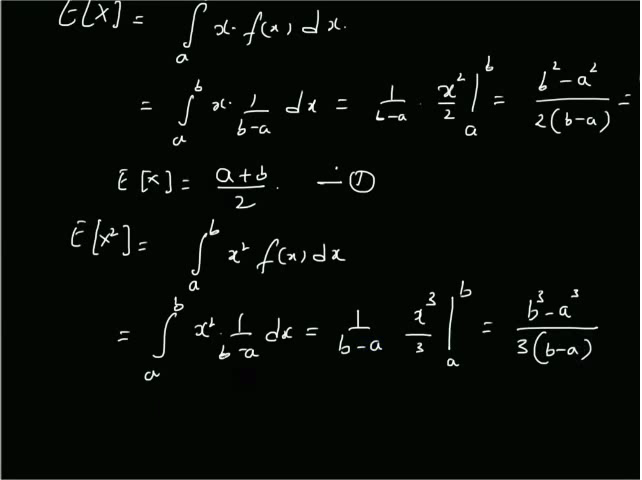 E[X] = ∫ₐ x. f(x) dx.
= ∫ₐᵇ x. 1/(b-a) dx = 1/(b-a) . x²/2 |ₐᵇ = (b² - a²)/(2(b-a)) =
E[x] = (a+b)/2 . — ①
E[x²] = ∫ₐᵇ x² f(x) dx
= ∫ₐᵇ x². 1/(b-a) dx = 1/(b-a) x³/3 |ₐᵇ = (b³ - a³)/(3(b-a))